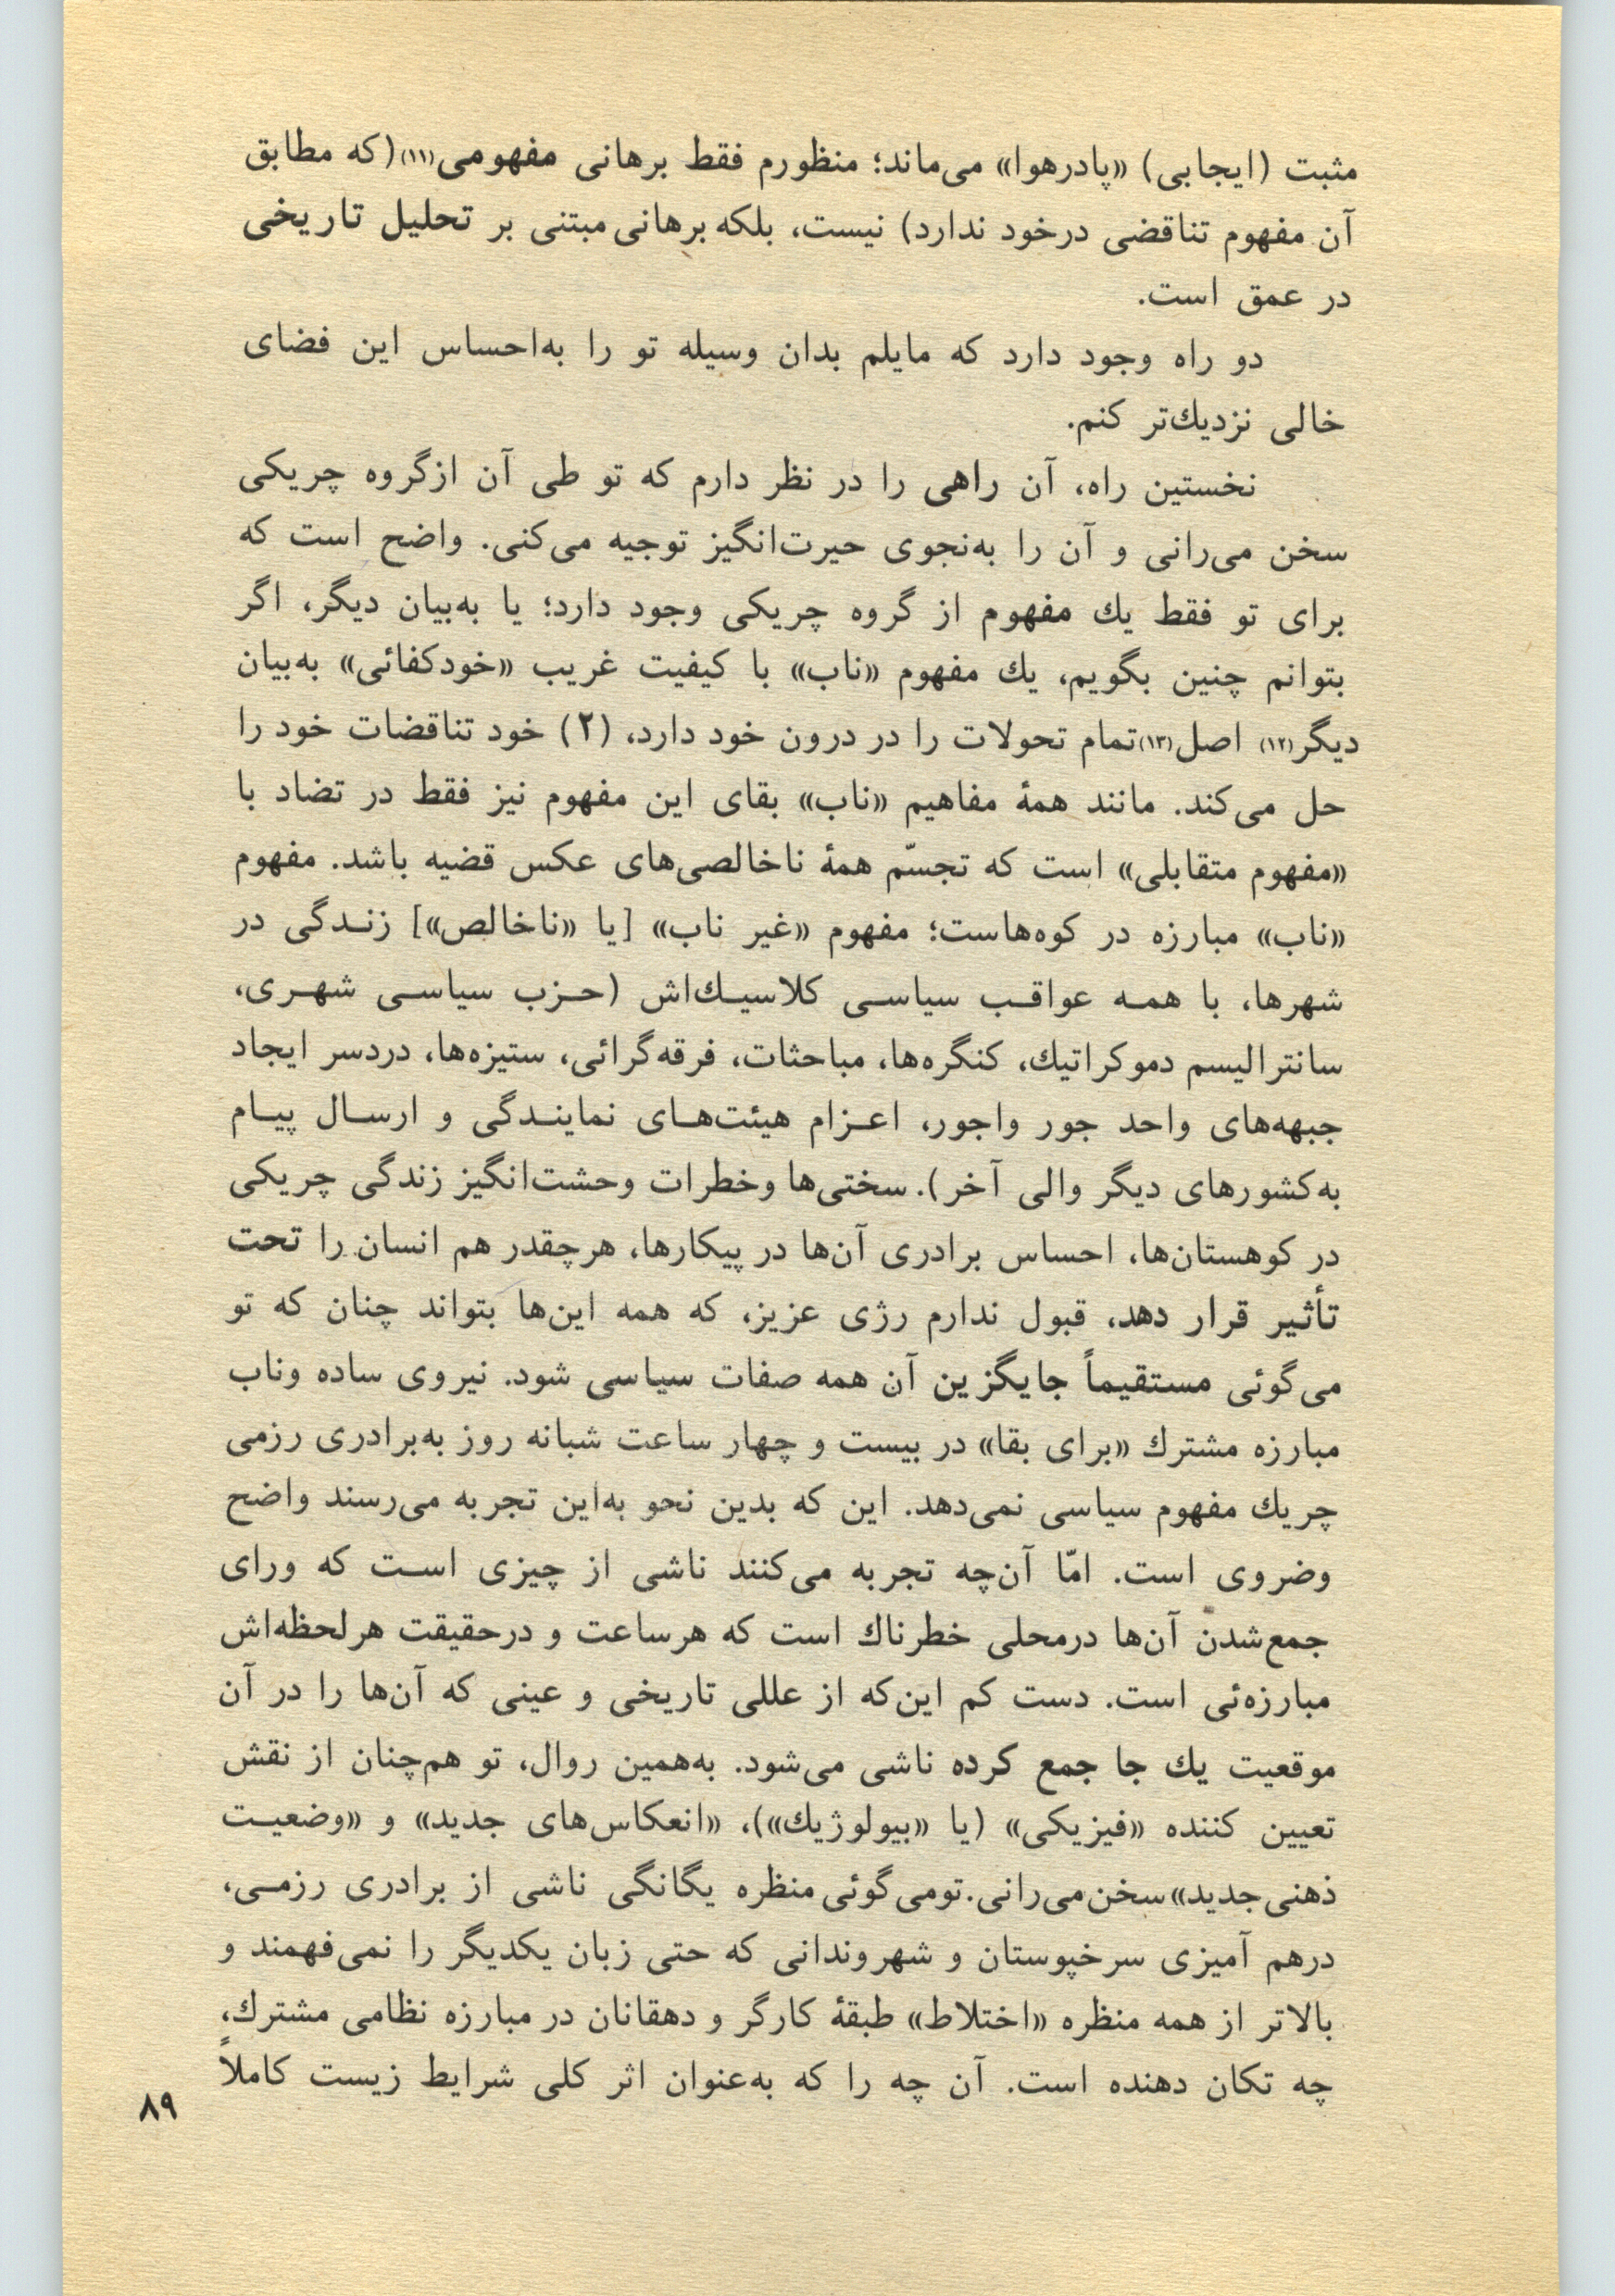 مثبت (ایجابی) «پادرهوا» می‌ماند؛ منظورم فقط برهانی مفهومی(۱۱)(که مطابق
آن مفهوم تناقضی درخود ندارد) نیست، بلکه برهانی مبتنی بر تحلیل تاریخی
در عمق است.
دو راه وجود دارد که مایلم بدان وسیله تو را به‌احساس این فضای
خالی نزدیك‌تر کنم.
نخستین راه، آن راهی را در نظر دارم که تو طی آن ازگروه چریکی
سخن می‌رانی و آن را به‌نجوی حیرت‌انگیز توجیه می‌کنی. واضح است که
برای تو فقط یك مفهوم از گروه چریکی وجود دارد؛ یا به‌بیان دیگر، اگر
بتوانم چنین بگویم، یك مفهوم «ناب» با کیفیت غریب «خودکفائی» به‌بیان
دیگر(۱۲) اصل(۱۳)تمام تحولات را در درون خود دارد، (۲) خود تناقضات خود را
حل می‌کند. مانند همهٔ مفاهیم «ناب» بقای این مفهوم نیز فقط در تضاد با
«مفهوم متقابلی» است که تجسّم همهٔ ناخالصی‌های عکس قضیه باشد. مفهوم
«ناب» مبارزه در کوه‌هاست؛ مفهوم «غیر ناب» [یا «ناخالص»] زنـدگی در
شهرها، با همـه عواقـب سیاسـی کلاسیـك‌اش (حـزب سیاسـی شهـری،
سانترالیسم دموکراتیك، کنگره‌ها، مباحثات، فرقه‌گرائی، ستیزه‌ها، دردسر ایجاد
جبهه‌های واحد جور واجور، اعـزام هیئت‌هـای نماینـدگی و ارسـال پیـام
به‌کشورهای دیگر والی آخر). سختی‌ها وخطرات وحشت‌انگیز زندگی چریکی
در کوهستان‌ها، احساس برادری آن‌ها در پیکارها، هرچقدر هم انسان را تحت
تأثیر قرار دهد، قبول ندارم رژی عزیز، که همه این‌ها بتواند چنان که تو
می‌گوئی مستقیماً جایگزین آن همه صفات سیاسی شود. نیروی ساده وناب
مبارزه مشترك «برای بقا» در بیست و چهار ساعت شبانه روز به‌برادری رزمی
چریك مفهوم سیاسی نمی‌دهد. این که بدین نحو به‌این تجربه می‌رسند واضح
وضروی است. امّا آن‌چه تجربه می‌کنند ناشی از چیزی اسـت که ورای
جمع‌شدن آن‌ها درمحلی خطرناك است که هرساعت و درحقیقت هرلحظه‌اش
مبارزه‌ئی است. دست کم این‌که از عللی تاریخی و عینی که آن‌ها را در آن
موقعیت یك جا جمع کرده ناشی می‌شود. به‌همین روال، تو هم‌چنان از نقش
تعیین کننده «فیزیکی» (یا «بیولوژیك»)، «انعکاس‌های جدید» و «وضعیـت
ذهنی‌جدید» سخن‌می‌رانی.تومی‌گوئی‌منظره یگانگی ناشی از برادری رزمـی،
درهم آمیزی سرخپوستان و شهروندانی که حتی زبان یکدیگر را نمی‌فهمند و
بالاتر از همه منظره «اختلاط» طبقهٔ کارگر و دهقانان در مبارزه نظامی مشترك،
چه تکان دهنده است. آن چه را که به‌عنوان اثر کلی شرایط زیست کاملاً
۸۹